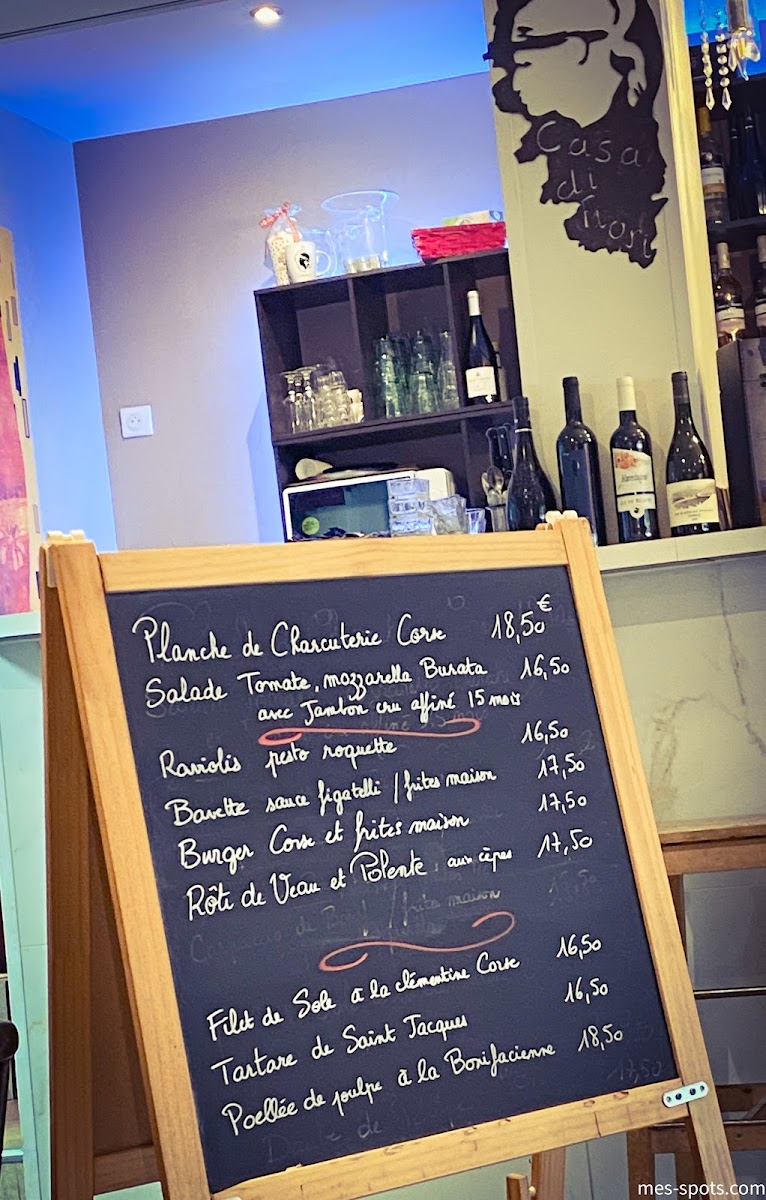 Casa
di
Planche de Charcuterie Corse 18,50€
Salade Tomate, mozzarella Burata 16,50
avec Jambon cru affiné 15 mois
Raviolis pesto roquette 16,50
Bavette sauce figatelli / frites maison 17,50
Burger Corse et frites maison 17,50
Rôti de Veau et Polente aux cèpes 17,50
Filet de Sole à la clémentine Corse 16,50
Tartare de Saint Jacques 16,50
Poellée de poulpe à la Bonifacienne 18,50
mes-spots.com